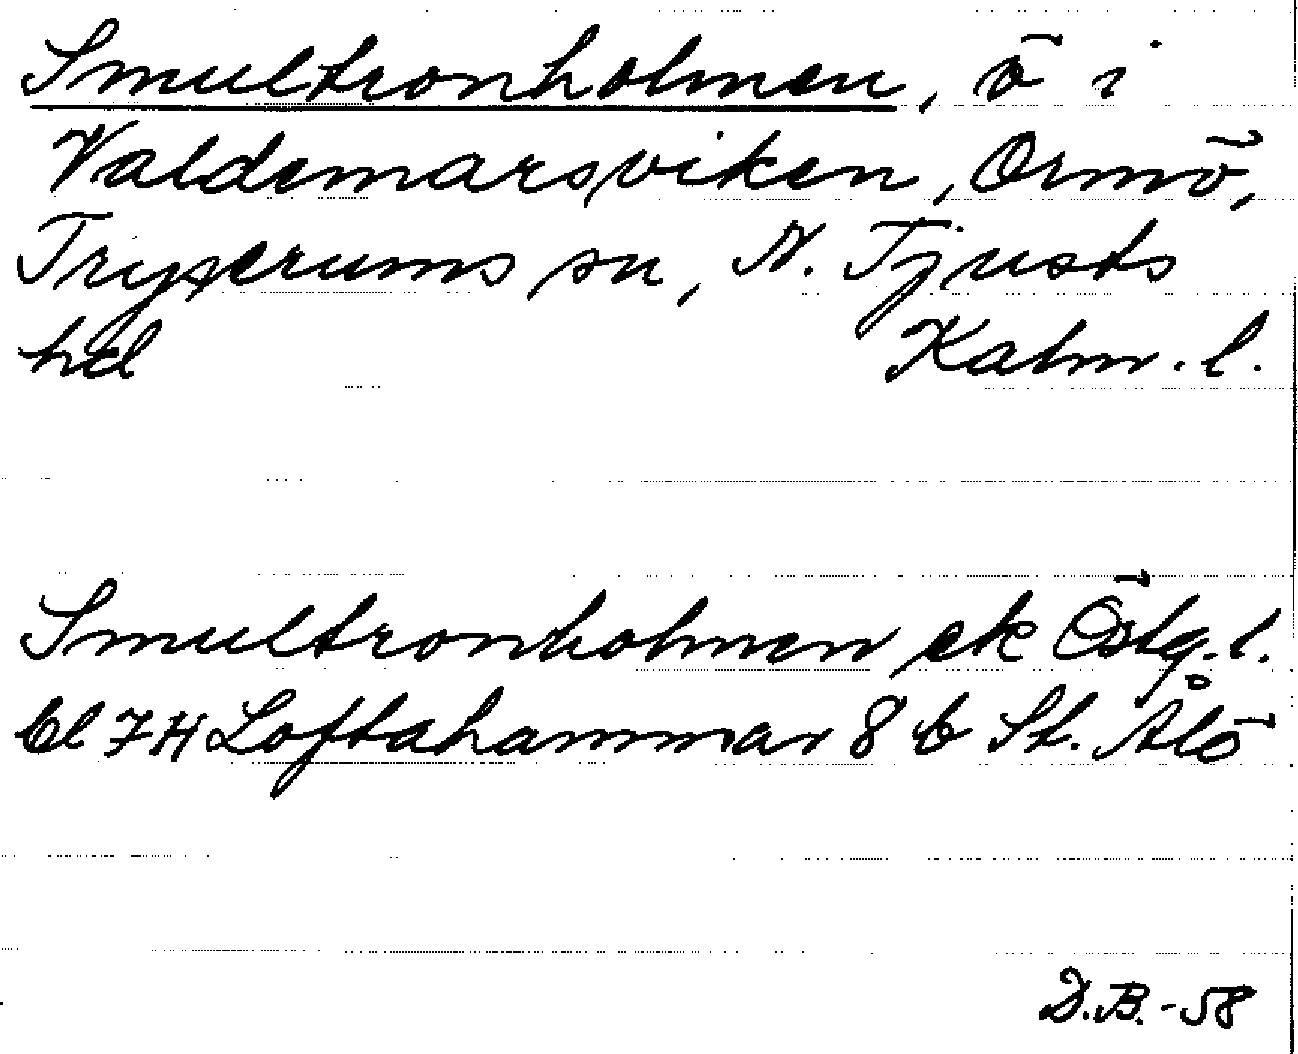 Smultronholmen, ö i
Valdemarsviken, Ormö,
Tryserums sn, N. Tjusts
hd Kalm. l.
Smultronholmen ek Östg. l.
bl 7H Loftahammar 8 b St. Ålö
D.B. -58